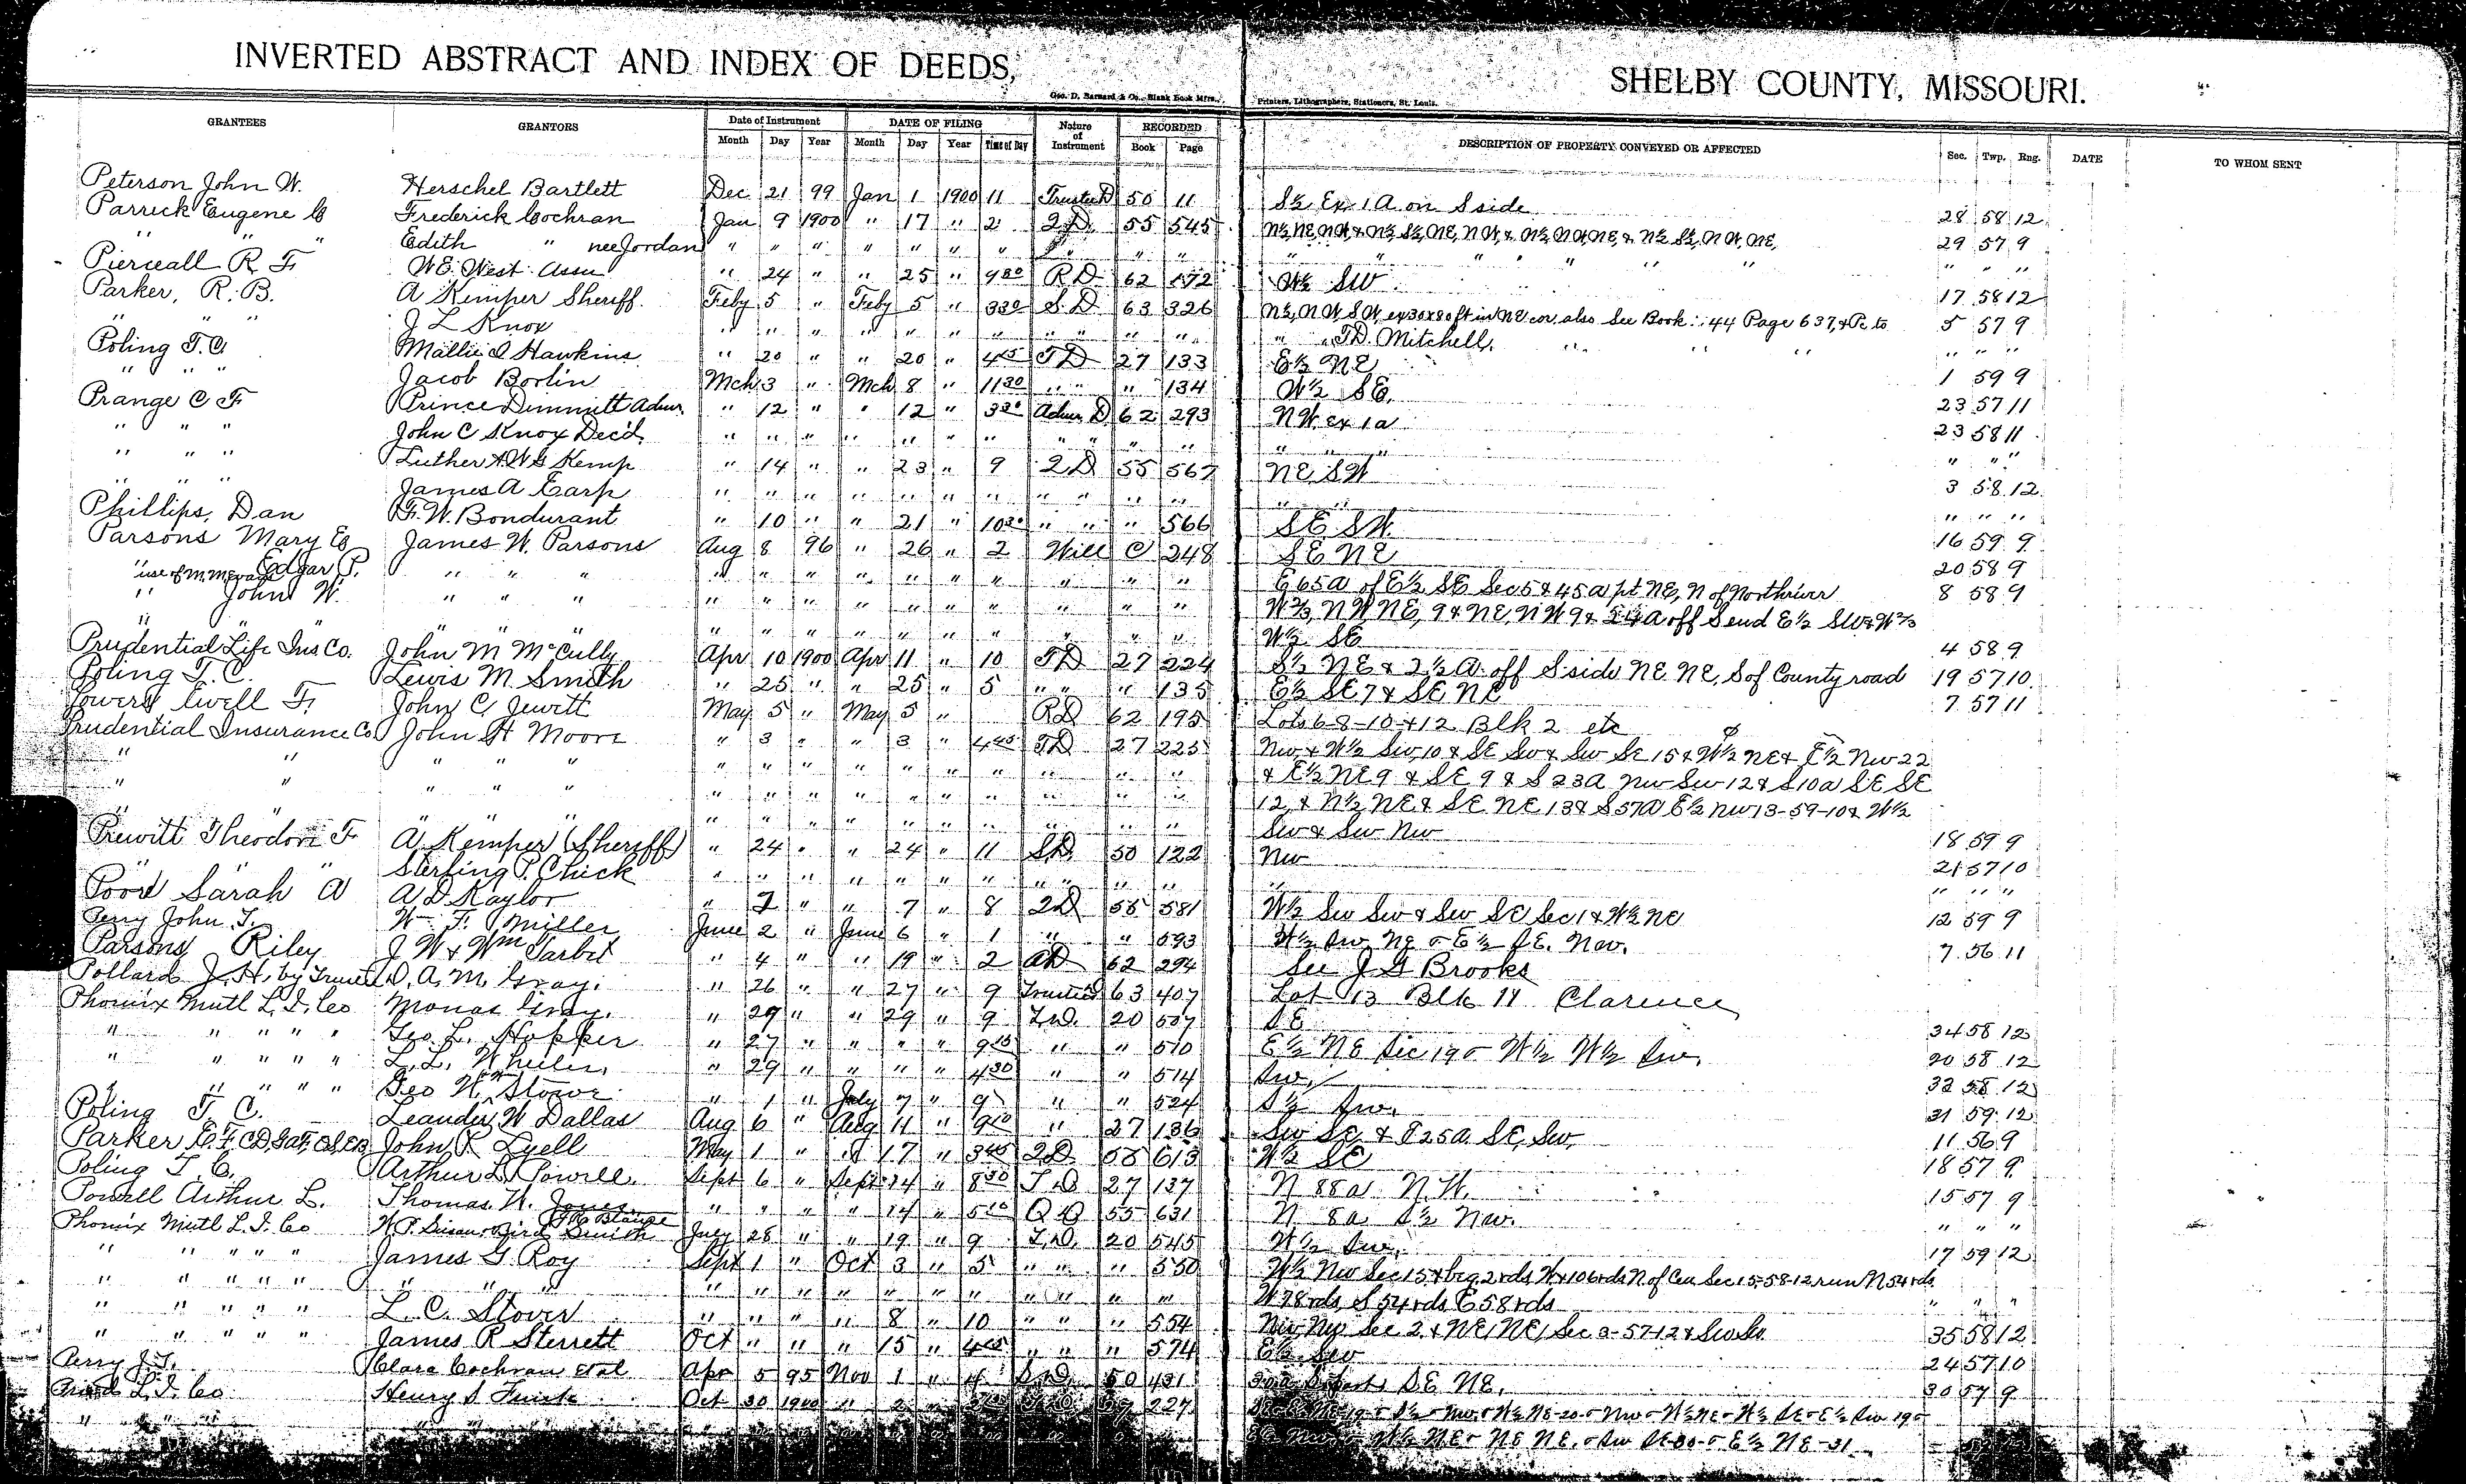 INVERTED ABSTRACT AND INDEX OF DEEDS, SHELBY COUNTY, MISSOURI.
Geo. D. Barnard & Co., Blank Book Mfrs., Printers, Lithographers, Stationers, St. Louis.
GRANTEES GRANTORS Date of Instrument DATE OF FILING Nature of Instrument RECORDED DESCRIPTION OF PROPERTY CONVEYED OR AFFECTED Sec. Twp. Rng. DATE TO WHOM SENT
Month Day Year Month Day Year Time of Day Book Page
Peterson John W. Herschel Bartlett Dec 21 99 Jan 1 1900 11 Trustee D 50 11 S½ Ex 1 A on S side 28 58 12
Parrick Eugene C Frederick Cochran Jan 9 1900 " 17 " 2 2 D 55 545 N½, NE, NW & N½, S½, NE, NW, & N½ NW NE, & N½ S½, NW, NE, 29 57 9
" " " Edith " nee Jordan " " " " " " " " " " " " " "
Pierceall R F W E West Assn " 24 " " 25 " 9 00 R D 62 172 W½ SW 17 58 12
Parker, R. B. A Kemper Sheriff Feby 5 " Feby 5 " 3 30 S. D 63 326 N½, NW, SW, ex 30x80 ft in NE cor, also See Book 44 Page 637, & Pc to 5 57 9
" " " J L Knox " " " " " " " " " " " T D. Mitchell " " "
Poling T. C. Mallie I Hawkins " 20 " " 20 " 4 45 T D 27 133 E½ NE 1 59 9
" " " Jacob Borlin Mch 3 " Mch 8 " 11 30 " " " 134 W½ SE. 23 57 11
Prange C F Prince Dimmitt Admr. " 12 " " 12 " 3 30 Admr D 62 293 NW ex 1 a 23 58 11
" " " John C Knox Dec'd " " " " " " " " " " " " " " "
" " " Luther & W G Kemp " 14 " " 23 " 9 2 D 55 567 NE SW 3 58 12
" " " James A Earp " " " " " " " " " " " " " " "
Phillips, Dan F. W. Bondurant " 10 " " 21 " 10 30 " " " 566 SE SW. 16 59 9
Parsons Mary E James W. Parsons Aug 8 96 " 26 " 2 Will C 248 SE NE 20 58 9
" use of M. M. Evans Edgar P. " " " " " " " " " " " " " E 65 a of E½ SE Sec 5 & 45 a pt NE, N of North river 8 58 9
" John W. " " " " " " " " " " " " " W⅔, NW, NE, 9 & NE, NW 9 & 24 A off S end E½ SW & W⅔
" " " " " " " " " " " " " " W½ SE 4 58 9
Prudential Life Ins Co. John M McCully Apr 10 1900 Apr 11 " 10 T D 27 224 S½ NE & 2½ A. off S side NE NE, S of County road 19 57 10
Poling T. C. Lewis M. Smith " 25 " " 25 " 5 " " " 135 E½ SE 7 & SE NE 7 57 11
Powers Ewell F. John C. Jewitt May 5 " May 5 " R D 62 195 Lots 6-8-10 & 12 Blk 2 etc
Prudential Insurance Co John H Moore " 3 " " 3 " 4 45 T D 27 225 NW, & W½ SW, 10 & SE SW & SW SE 15 & W½ NE & E½ NW 22
" " " " " " " " " " " " " " " & E½ NE 9 & SE 9 & S 23 A NW SW 12 & S 10 a SE SE
" " " " " " " " " " " " " " " 12, & N½ NE & SE NE 13 & S 57 A E½ NW 13-59-10 & W½
" " " " " " " " " " " " " " " SW & SW NW 18 59 9
Prewitt Theodore F A Kemper (Sheriff) " 24 " " 24 " 11 S. D. 50 122 NW 21 57 10
" " " Sterling P. Chick " " " " " " " " " " " " " " "
Pool Sarah A A D Kaylor " 7 " " 7 " 8 2 D 55 581 W½ SW SW & SW SE Sec 1 & W½ NE 12 59 9
Perry John T. Wm F. Miller June 2 " June 6 " 1 " " 593 W½ SW, NE & E½ SE. NW. 7 56 11
Parsons Riley J W & Wm Tarbet " 4 " " 19 " 2 A D 62 294 See J G Brooks
Pollard J. H. by Trustee D. A. M. Gray. " 26 " " 27 " 9 Trustees 63 407 Lot 13 Blk 11 Clarence
Phoenix Mutl L. I. Co Monas Gray. " 29 " " 29 " 9 T. D. 20 507 SE 34 58 12
" " " " " Geo L. Hopper " 27 " " " " 9 15 " " 510 E½ NE Sec 19 & W½ W½ SW. 20 58 12
" " " " " L. L. Wheeler " 29 " " " " 4 30 " " 514 SW. 32 58 12
" " " " " Geo W. Stowe " 1 " July 7 " 9 " " 524 S½ SW. 31 59 12
Poling T. C. Leander W Dallas Aug 6 " Aug 11 " 9 10 " 27 136 SW SE & E 25 A. SE, SW. 11 56 9
Parker E. F. C D, G a F, C S, E B John R Lyell May 1 " " 17 " 3 45 2 D 55 613 W½ SE 18 57 9
Poling T. C. Arthur L. Powell Sept 6 " Sept 14 " 8 30 T. D 27 137 N 88 a N. W. 15 57 9
Powell Arthur L. Thomas W. Jones " " " " 14 " 5 10 Q D 55 631 N 8 a S½ NW. " " "
Phoenix Mutl L. I. Co July 28 " " 19 " 9 T. D. 20 545 W½ SW. 17 59 12
" " " " " James G. Roy Sept 1 " Oct 3 " 5 " " " 550 W½ NW Sec 15 & beg 2 rds W & 106 rds N of Cen Sec 15-58-12 run N 54 rds
" " " " " " " " " " " " " " " " " " W 78 rds S 54 rds E 58 rds " " "
" " " " " L. C. Stover " " " " 8 " 10 " " " 554 NW, NW Sec 2, & NE, NE, Sec 3-57-12 & SW SW 35 58 12
" " " " " James R Sterrett Oct " " " 15 " 4 45 " " " 574 E½ SW 24 57 10
Perry J. T. Clara Cochran et al Apr 5 95 Nov 1 " 4 S. D. 50 431 SE NE. 30 57 9
Prud L. I. Co Henry S Oct 30 1900 " 2 " 27 227
" " " " " " E½ NW, & W½ NE & NE NE. & SW SE-30- & E½ NE-31